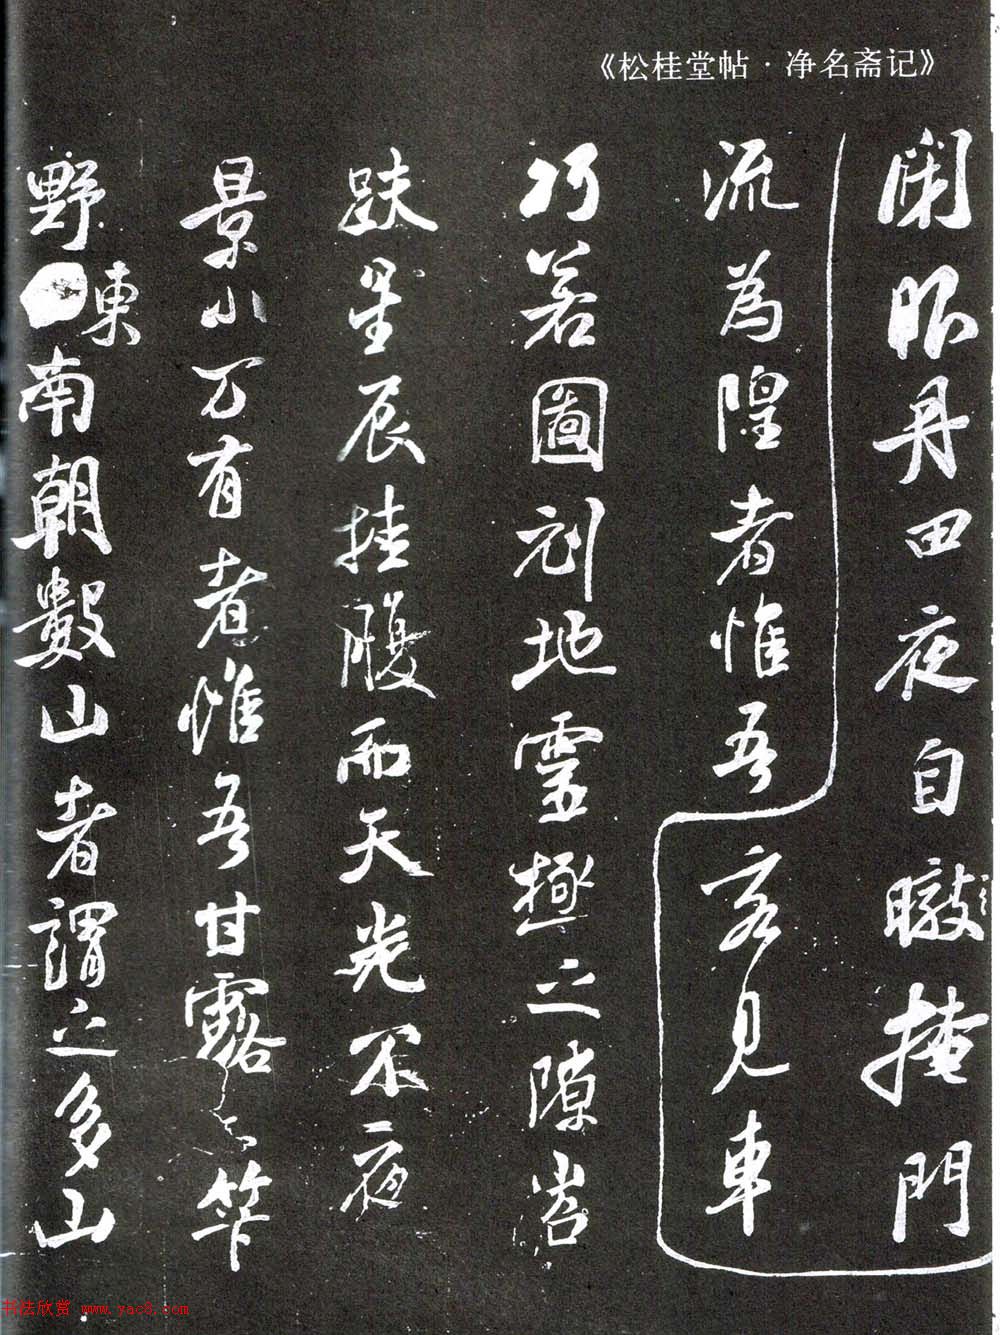 《松桂堂帖·净名斋记》
閑㫼丹田夜自暾掩門
流為隍者惟吾客見車
巧若圖刻地靈極之隙岩
趺星辰挂腹而天光不夜
景小万有者惟吾甘露
野東南朝數山者謂之多山
书法欣赏 www.yac8.com